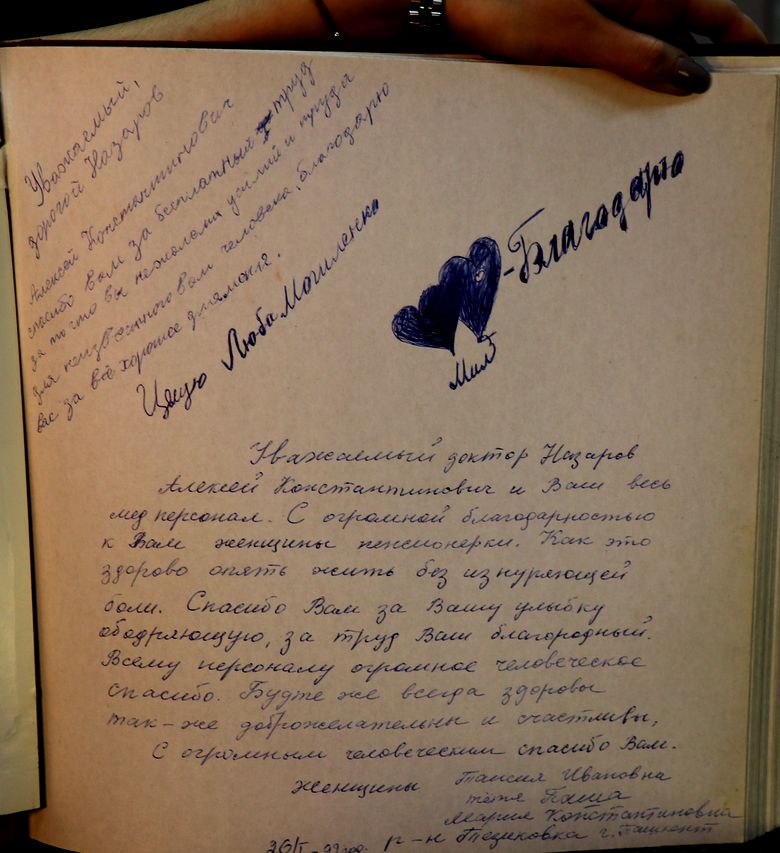 Уважаемый,
дорогой Назаров
Алексей Константинович
спасибо вам за бесплатный труд
за то что вы не жалели усилий и труда
для неизвестного вам человека, благодарю
вас за всё хорошое для меня.
Цащую Люба Могиленко
-Благодарю
Мил
Уважаемый доктор Назаров
Алексей Константинович и Ваш весь
мед персонал. С огромной благодарностью
к Вам женщины пенсионерки. Как это
здорово опять жить без изнуряющей
боли. Спасибо Вам за Вашу улыбку
ободряющую, за труд Ваш благородный.
Всему персоналу огромное человеческое
спасибо. Будте же всегда здоровы
так-же доброжелательны и счастливы,
С огромным человеческим спасибо Вам.
женщины Таисия Ивановна
тётя Паша
Мария Константиновна
р-н Тезиковка г. Ташкент